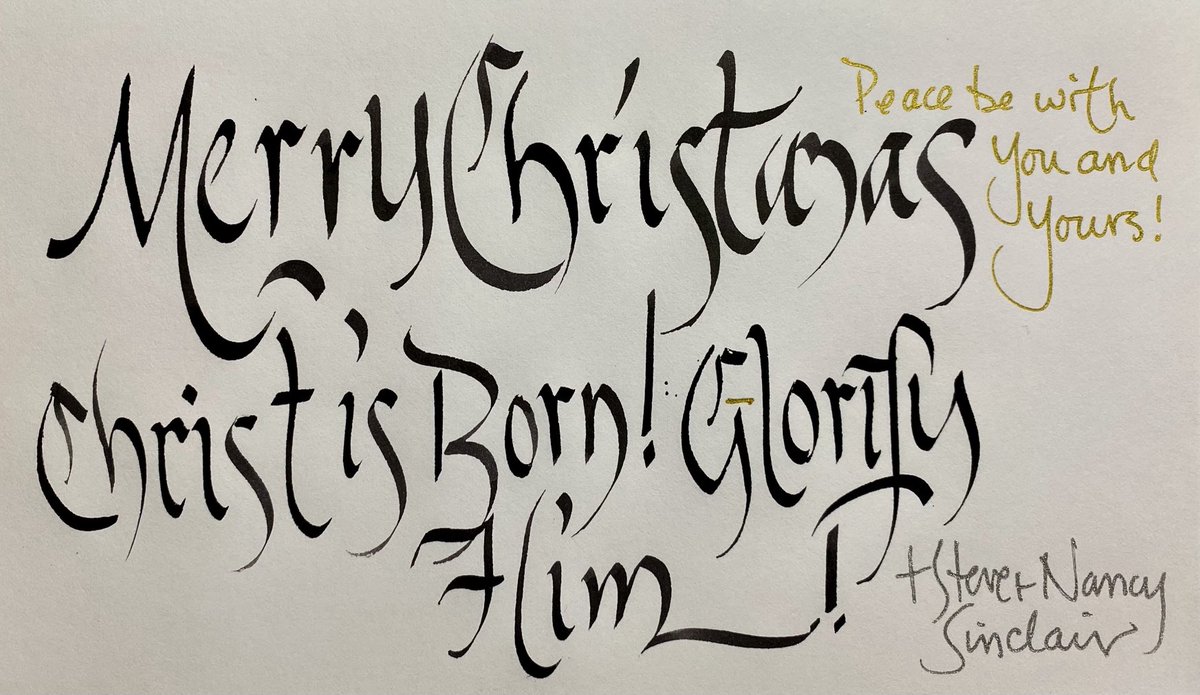 Merry Christmas
Peace be with
You and
Yours!
Christ is Born! Glorify
Him!
+Steve + Nancy
Sinclair